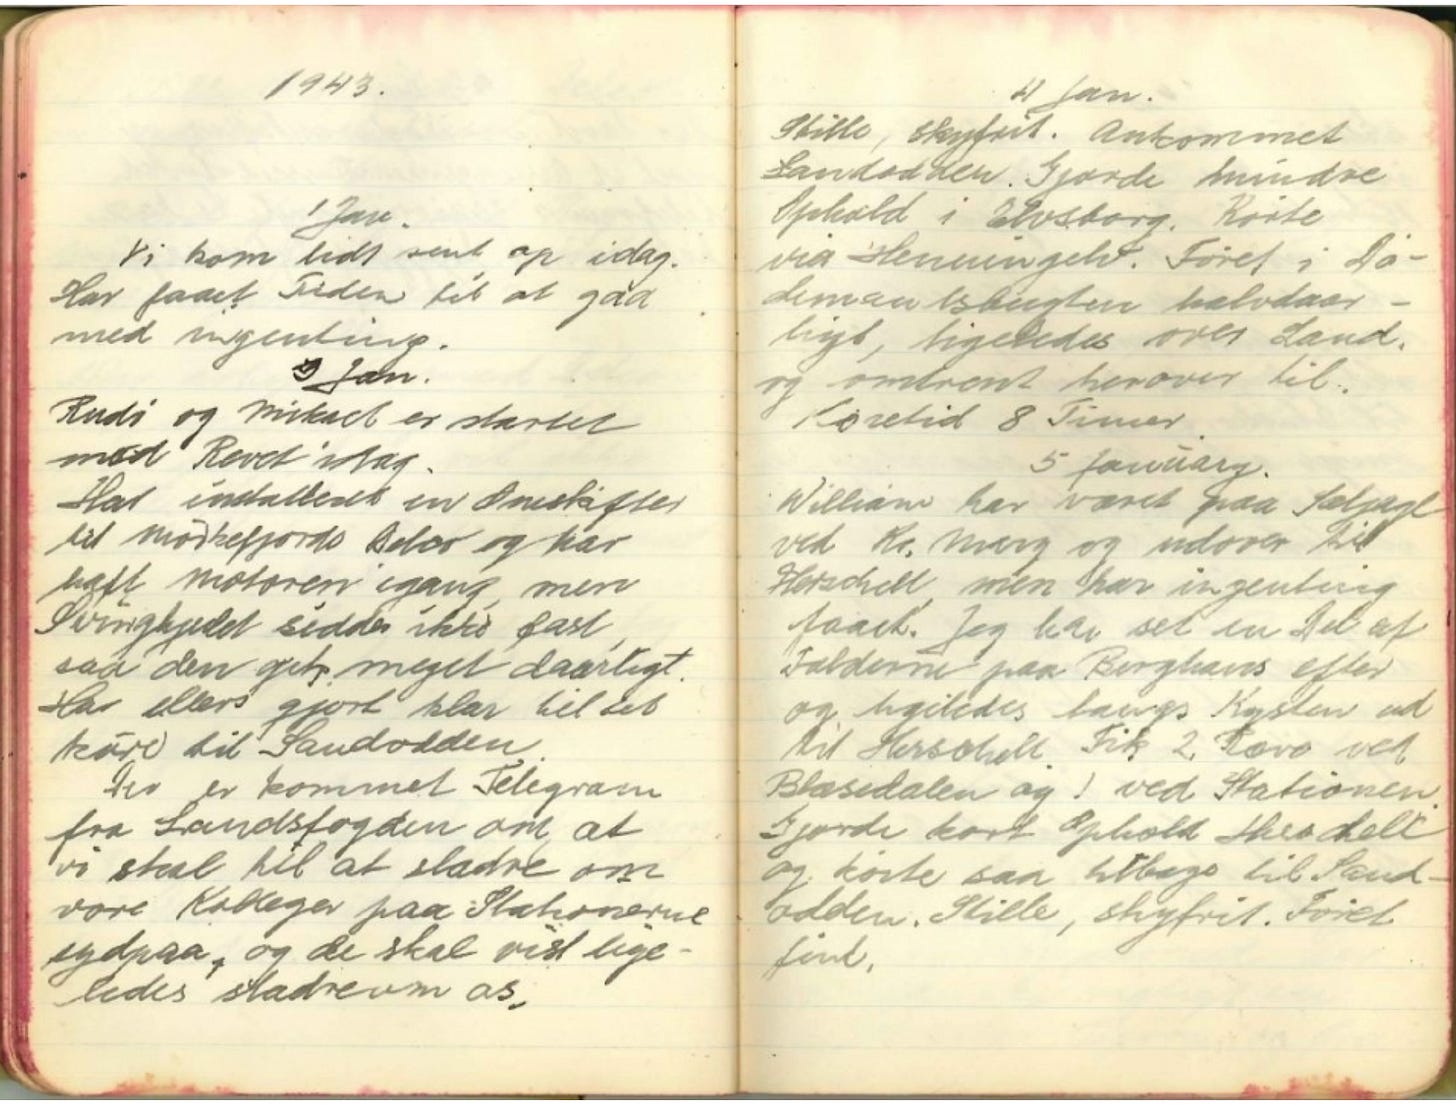 1943.
1 Jan.
Vi kom lidt sent op idag.
Har faaet Tiden til at gaa
med ingenting.
3 Jan.
Rudi og Mikael er startet
mod Revet idag.
Har installeret en Omskifter
til Mörkefjords Beler og har
haft Motoren igang, men
Svinghjulet sidder ikke fast,
saa den gik meget daarligt.
Har ellers gjort klar til at
köre til Sandodden.
Der er kommet Telegram
fra Landsfogden om, at
vi skal til at sladre om
vore Kolleger paa Stationerne
sydpaa, og de skal vist lige-
ledes sladre om os.
4 Jan.
Stille, skyfrit. Ankommet
Sandodden. Gjorde mindre
Ophold i Elvsborg. Körte
via Henningelv. Föret i Dö-
demandsbugten halvdaar-
ligt, ligeledes over Land.
og omtrent herover til.
Köretid 8 Timer
5 January.
William har været paa Sæljagt
ved Kr. Marg og udover til
Herschell, men har ingenting
faaet. Jeg har set en Del af
Fælderne paa Berghaus efter
og ligeledes langs Kysten ud
til Herschell. Fik 2 Ræve ved
Blæsedalen og 1 ved Stationen.
Gjorde kort Ophold Herschell
og körte saa tilbage til Sand-
odden. Stille, skyfrit. Föret
fint.